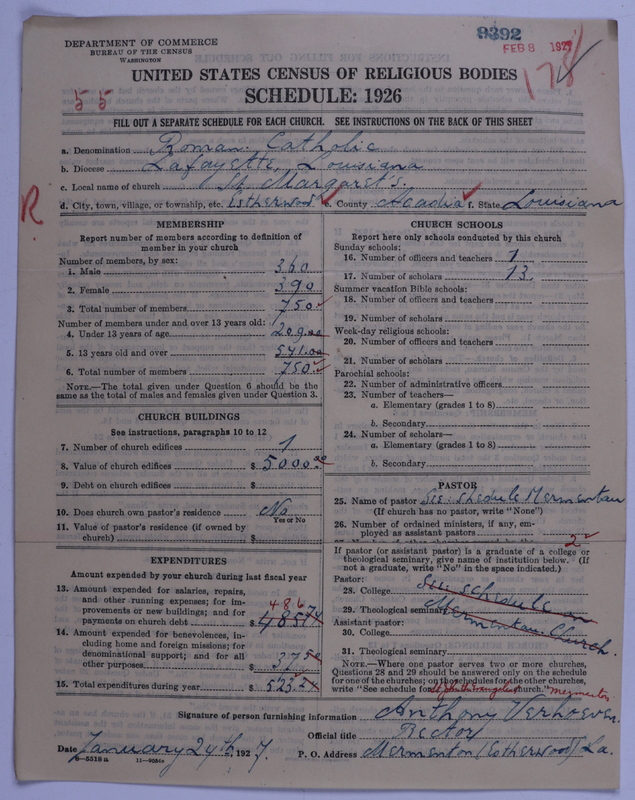 DEPARTMENT OF COMMERCE
BUREAU OF THE CENSUS
WASHINGTON
9392
FEB 8 1927
178
55
UNITED STATES CENSUS OF RELIGIOUS BODIES
SCHEDULE: 1926
FILL OUT A SEPARATE SCHEDULE FOR EACH CHURCH. SEE INSTRUCTIONS ON THE BACK OF THIS SHEET
a. Denomination Roman Catholic
b. Diocese Lafayette, Louisiana
c. Local name of church St. Margaret's.
R
d. City, town, village, or township, etc. Estherwood e. County Acadia f. State Louisiana
MEMBERSHIP
Report number of members according to definition of member in your church
Number of members, by sex:
1. Male 360
2. Female 390
3. Total number of members 750
Number of members under and over 13 years old:
4. Under 13 years of age 209.00
5. 13 years old and over 541.00
6. Total number of members 750
NOTE.—The total given under Question 6 should be the same as the total of males and females given under Question 3.
CHURCH BUILDINGS
See instructions, paragraphs 10 to 12
7. Number of church edifices 1
8. Value of church edifices $ 5000.00
9. Debt on church edifices $
10. Does church own pastor's residence? No
Yes or No
11. Value of pastor's residence (if owned by church) $
EXPENDITURES
Amount expended by your church during last fiscal year
13. Amount expended for salaries, repairs, and other running expenses; for improvements or new buildings; and for payments on church debt $ 485
486
14. Amount expended for benevolences, including home and foreign missions; for denominational support; and for all other purposes 37
15. Total expenditures during year $ 523
CHURCH SCHOOLS
Report here only schools conducted by this church
Sunday schools:
16. Number of officers and teachers 1
17. Number of scholars 13
Summer vacation Bible schools:
18. Number of officers and teachers
19. Number of scholars
Week-day religious schools:
20. Number of officers and teachers
21. Number of scholars
Parochial schools:
22. Number of administrative officers
23. Number of teachers—
a. Elementary (grades 1 to 8)
b. Secondary
24. Number of scholars—
a. Elementary (grades 1 to 8)
b. Secondary
PASTOR
25. Name of pastor See Shedule Mermentau
(If church has no pastor, write "None")
26. Number of ordained ministers, if any, employed as assistant pastors
2
If pastor (or assistant pastor) is a graduate of a college or theological seminary, give name of institution below. (If not a graduate, write "No" in the space indicated.)
Pastor:
28. College See schedule on
29. Theological seminary Mermentau Church.
Assistant pastor:
30. College
31. Theological seminary
NOTE.—Where one pastor serves two or more churches, Questions 28 and 29 should be answered only on the schedule for one of the churches; on the schedules for the other churches, write "See schedule for St. John the Evangelist church." Mermentau
Signature of person furnishing information Anthony Verhoeven
Official title Rector
Date January 24th, 1927. P. O. Address Mermenton (Estherwood) La.
8—5518a 11—9034